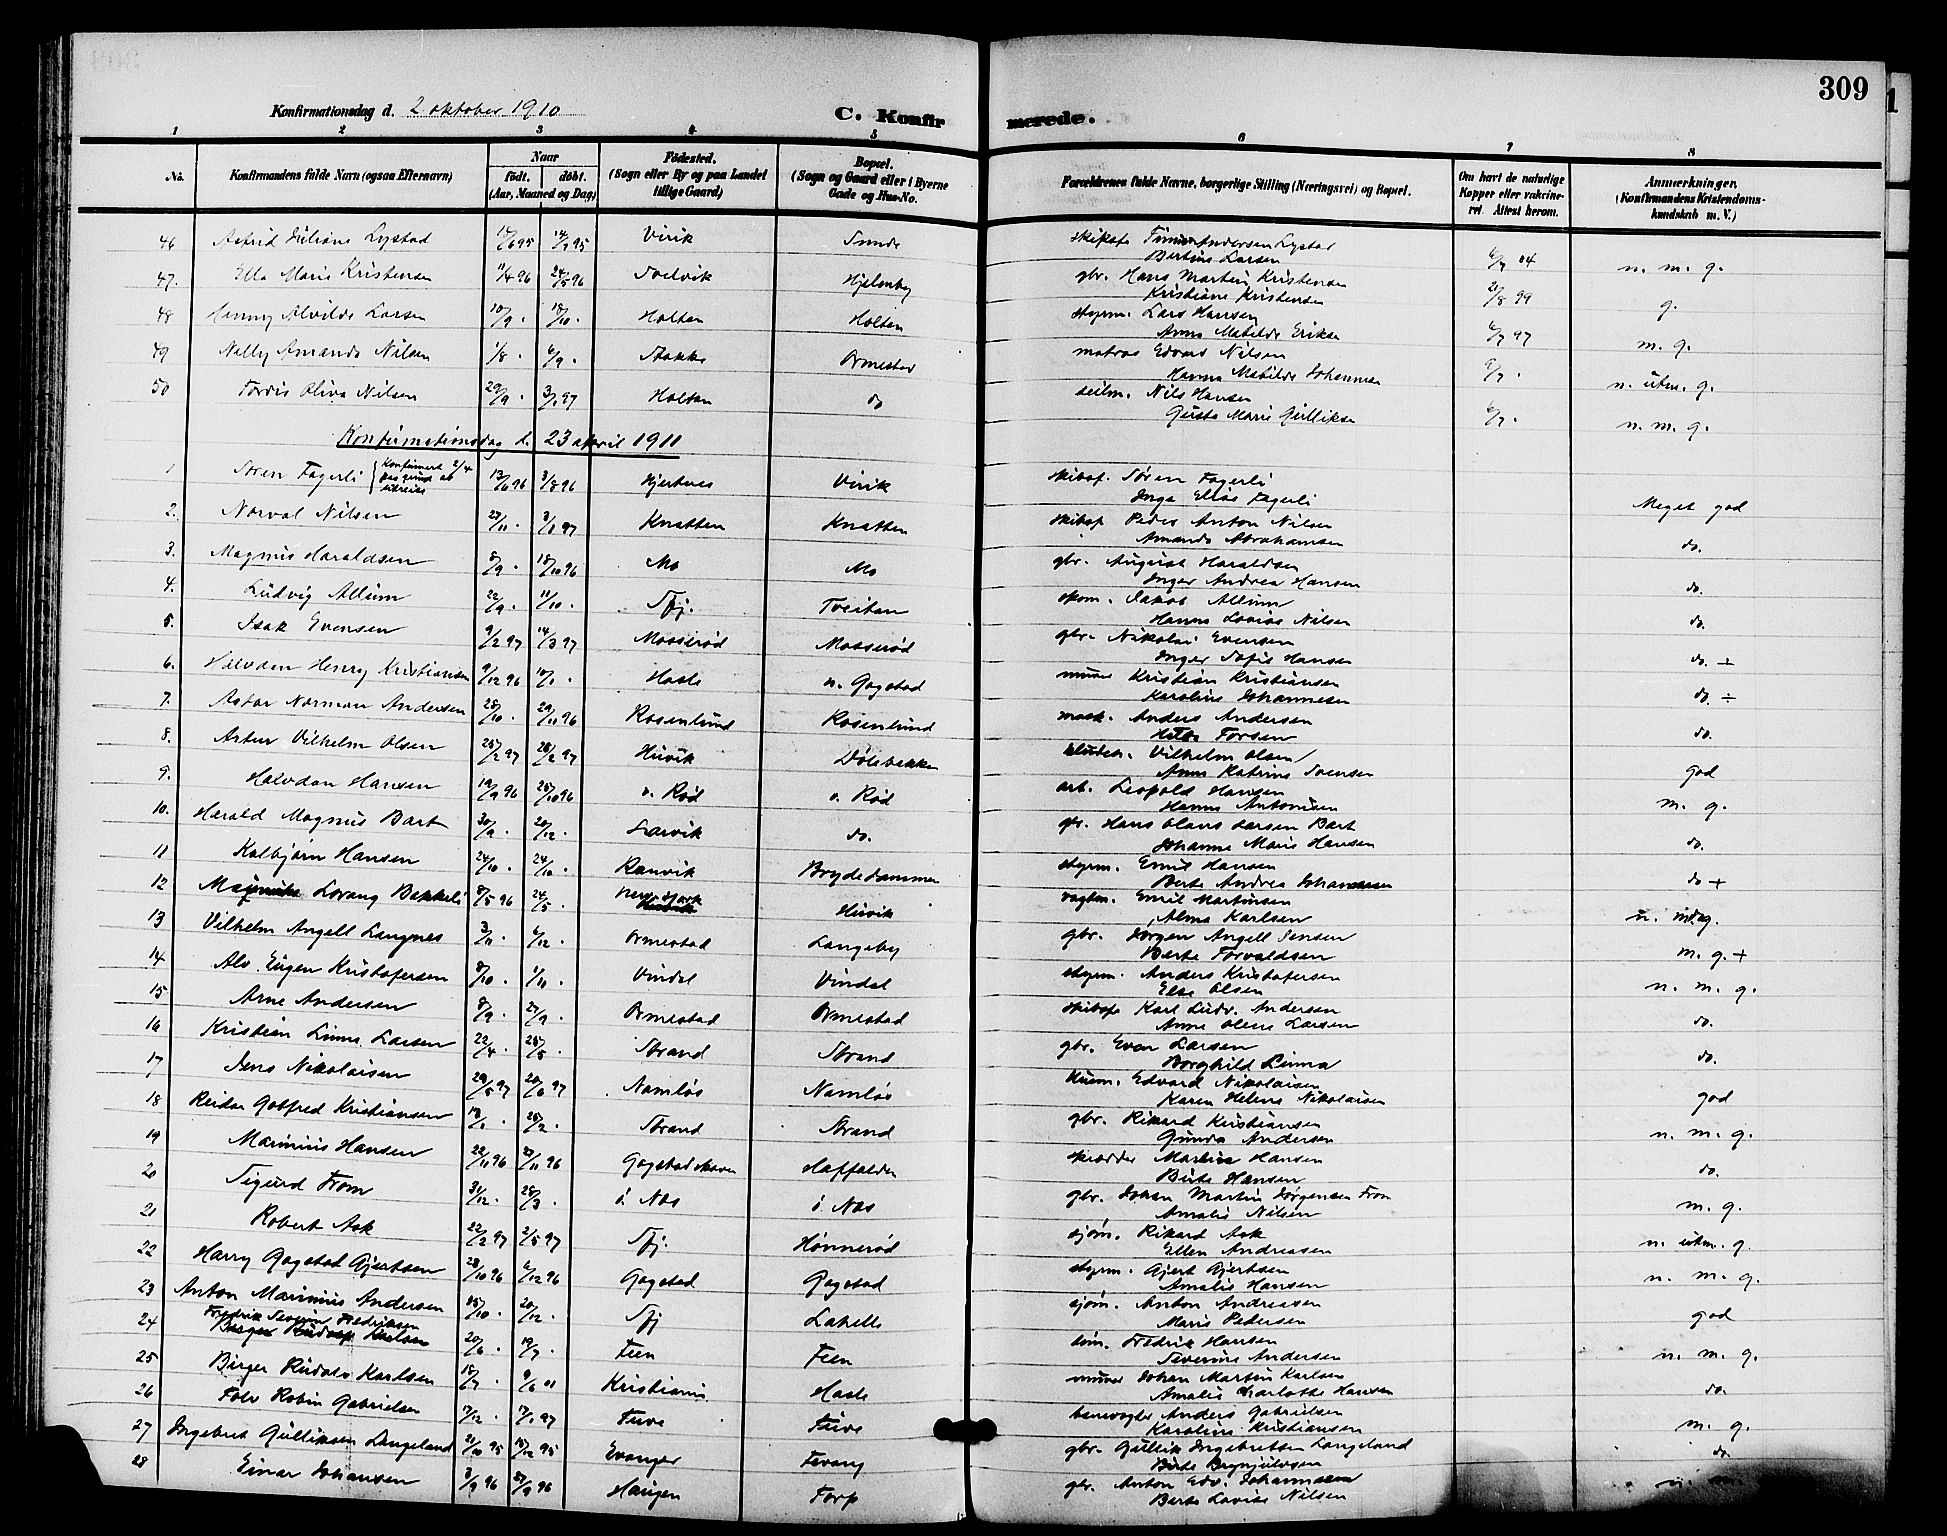 309
Konfirmationsdag d. 2 oktober 1910
C. Konfirmerede.
1 2 3 4 5 6 7 8
No. Konfirmandens fulde Navn (ogsaa Efternavn) Naar født. døbt. (Aar, Maaned og Dag) Fødested. (Sogn eller By og paa Landet tillige Gaard) Bopæl. (Sogn og Gaard eller i Byerne Gade og Hus-No. Forældrenes fulde Navne, borgerlige Stilling (Næringsvei) og Bopæl. Om havt de naturlige Kopper eller vakcineret. Attest herom. Anmærkninger. (Konfirmandens Kristendomskundskab m. V.)
46 Astrid Juliane Lystad 14/9 95 Virik Sunde Andersen Lystad
Bertine Larsen n. m. g.
47. Ella Marie Kristensen 11/4 96 24/5 96 Solvik Hjelmby gbr. Hans Martin Kristensen
Kristiane Kristensen 21/8 99 g.
48 Henny Alvilde Larsen 10/9 . 18/10 . Holtan Holtan styrm. Lars Hansen
Anna Matilde Eriksen 97 m. g.
49 Nelly Amanda Nilsen 1/8 . 6/9 . Stokke Ormestad matros Edvard Nilsen
Hanna Matilde Johannsen n. utm. g.
50 Tordis Oliva Nilsen 29/9 . 3/1 97 Holtan do seilm. Nils Hansen
Gusta Marie Gulliksen n. m. g.
Konfirmationsdag d. 23 april 1911
1 Søren Fagerli Konfirmert 2/4 paa grund af utreise 13/6 96 3/8 96 Hjertnes Virik skibsf. Søren Fagerli
Inga Elise Fagerli Meget god
2. Norval Nilsen 27/11 . 3/1 97 Knatten Knatten skibsf Peder Anton Nilsen
Amanda Abrahamsen do.
3. Magnus Haraldsen 8/9 . 18/10 96 Mo Mo gbr. August Haraldsen
Inger Andrea Hansen do.
4. Ludvig Allum 22/9 . 11/10 . Sfj. Tveitan skom. Jakob Allum
Hanna Lovise Nilsen do.
5. Isak Evensen 9/2 97 14/3 97 Mosserød Mosserød gbr. Nikolai Evensen
Inger Sofie Hansen do. +
6. Halvdan Henry Kristiansen 9/12 96 10/1 . Hasle n. Gogstad murer Kristian Kristiansen
Karoline Johannesen do. ÷
7. Asbør Norman Andersen 28/10 . 29/11 96 Rosenlund Rosenlund mask. Anders Andersen
Hilda Forsen do.
8. Artur Vilhelm Olsen 25/2 97 28/2 97 Huvik Dølebakken Vilhelm Olsen
Anna Katrine Svensen god
9. Halvdan Hansen 19/9 96 25/10 96 v. Rød v. Rød arb. Leopold Hansen
Hanna Antonisen m. g.
10. Harald Magnus Bart 30/9 . 20/12 . Larvik do. Hans Claus Larsen Bart
Johanne Marie Hansen do.
11 Kolbjørn Hansen 24/10 . 24/10 . Ranvik Brydedammen styrm. Emil Hansen
Berte Andrea Johannesen do +
12 Lorang Bakkeli 8/5 96 24/5 . New York Huvik vagtm. Emil Martinsen
Alma Karlsen n. mtg.
13 Vilhelm Angell Langnes 3/11 . 6/12 . Ormestad Langeby gbr. Jørgen Angell Jensen
Berte Torvaldsen m. g. +
14 Alv Eugen Kristofersen 8/10 . 1/11 . Vindal Vindal styrm. Anders Kristofersen
Else Olsen n. m. g.
15 Arne Andersen 8/9 . 27/9 . Ormestad Ormestad skibsfø Karl Ludv. Andersen
Anne Olene Larsen do.
16 Kristian Linna Larsen 22/4 . 25/5 . Strand Strand gbr. Even Larsen
Borghild Linna do.
17 Jens Nikolaisen 29/5 97 20/6 97 Namløs Namløs husm. Edvard Nikolaisen
Karen Helene Nikolaisen god
18 Reidar Gotfred Kristiansen 13/1 . 28/2 . Strand Strand gbr. Rikard Kristiansen
Gunda Andersen n. m. g.
19 Marinius Hansen 22/11 96 27/11 96 Gogstadskaven Haffalden skrædder Martin Hansen
Berte Hansen do.
20 Sigurd From 31/12 . 28/3 . ø. Nes ø. Nes gbr. Johan Martin Jørgensen From
Amalie Nilsen m. g.
21 Robert Ask 22/2 97 2/5 97 Sfj. Hønnerød sjøm. Rikard Ask
Ellen Andreasen n. utm. g.
22 Harry Gogstad Gjertsen 28/10 96 6/12 96 Gogstad Gogstad styrm. Gjert Gjertsen
Amalie Hansen n. m. g.
23 Anton Marinius Andersen 15/10 . 20/12 . Sfj Lakelle sjøm. Anton Andreasen
Marie Pedersen god
24 Fredrik Severin Fredriksen
Birger Rudolf Karlsen 20/6 . 19/7 . Feen Feen tøm. Fredrik Hansen
Severine Andersen n. m. g.
25 Birger Rudolv Karlsen 15/7 . 9/6 01 Kristiania Hasle murer Johan Martin Karlsen
Amalie Charlotte Hansen do.
26 Tolv Robin Gabrielsen 17/12 . 17/1 97 Tuve Tuve banevogter Anders Gabrielsen
Karoline Kristiansen m. g.
27 Ingebret Gulliksen Langeland 21/10 95 15/12 95 Evanger Fevang gbr. Gullik Ingebretsen Langeland
Birte Brynjulvsen do.
28 Einar Johansen 3/9 96 27/9 96 Haugen Torp gbr. Anton Edv. Johannesen
Berte Lovise Nilsen